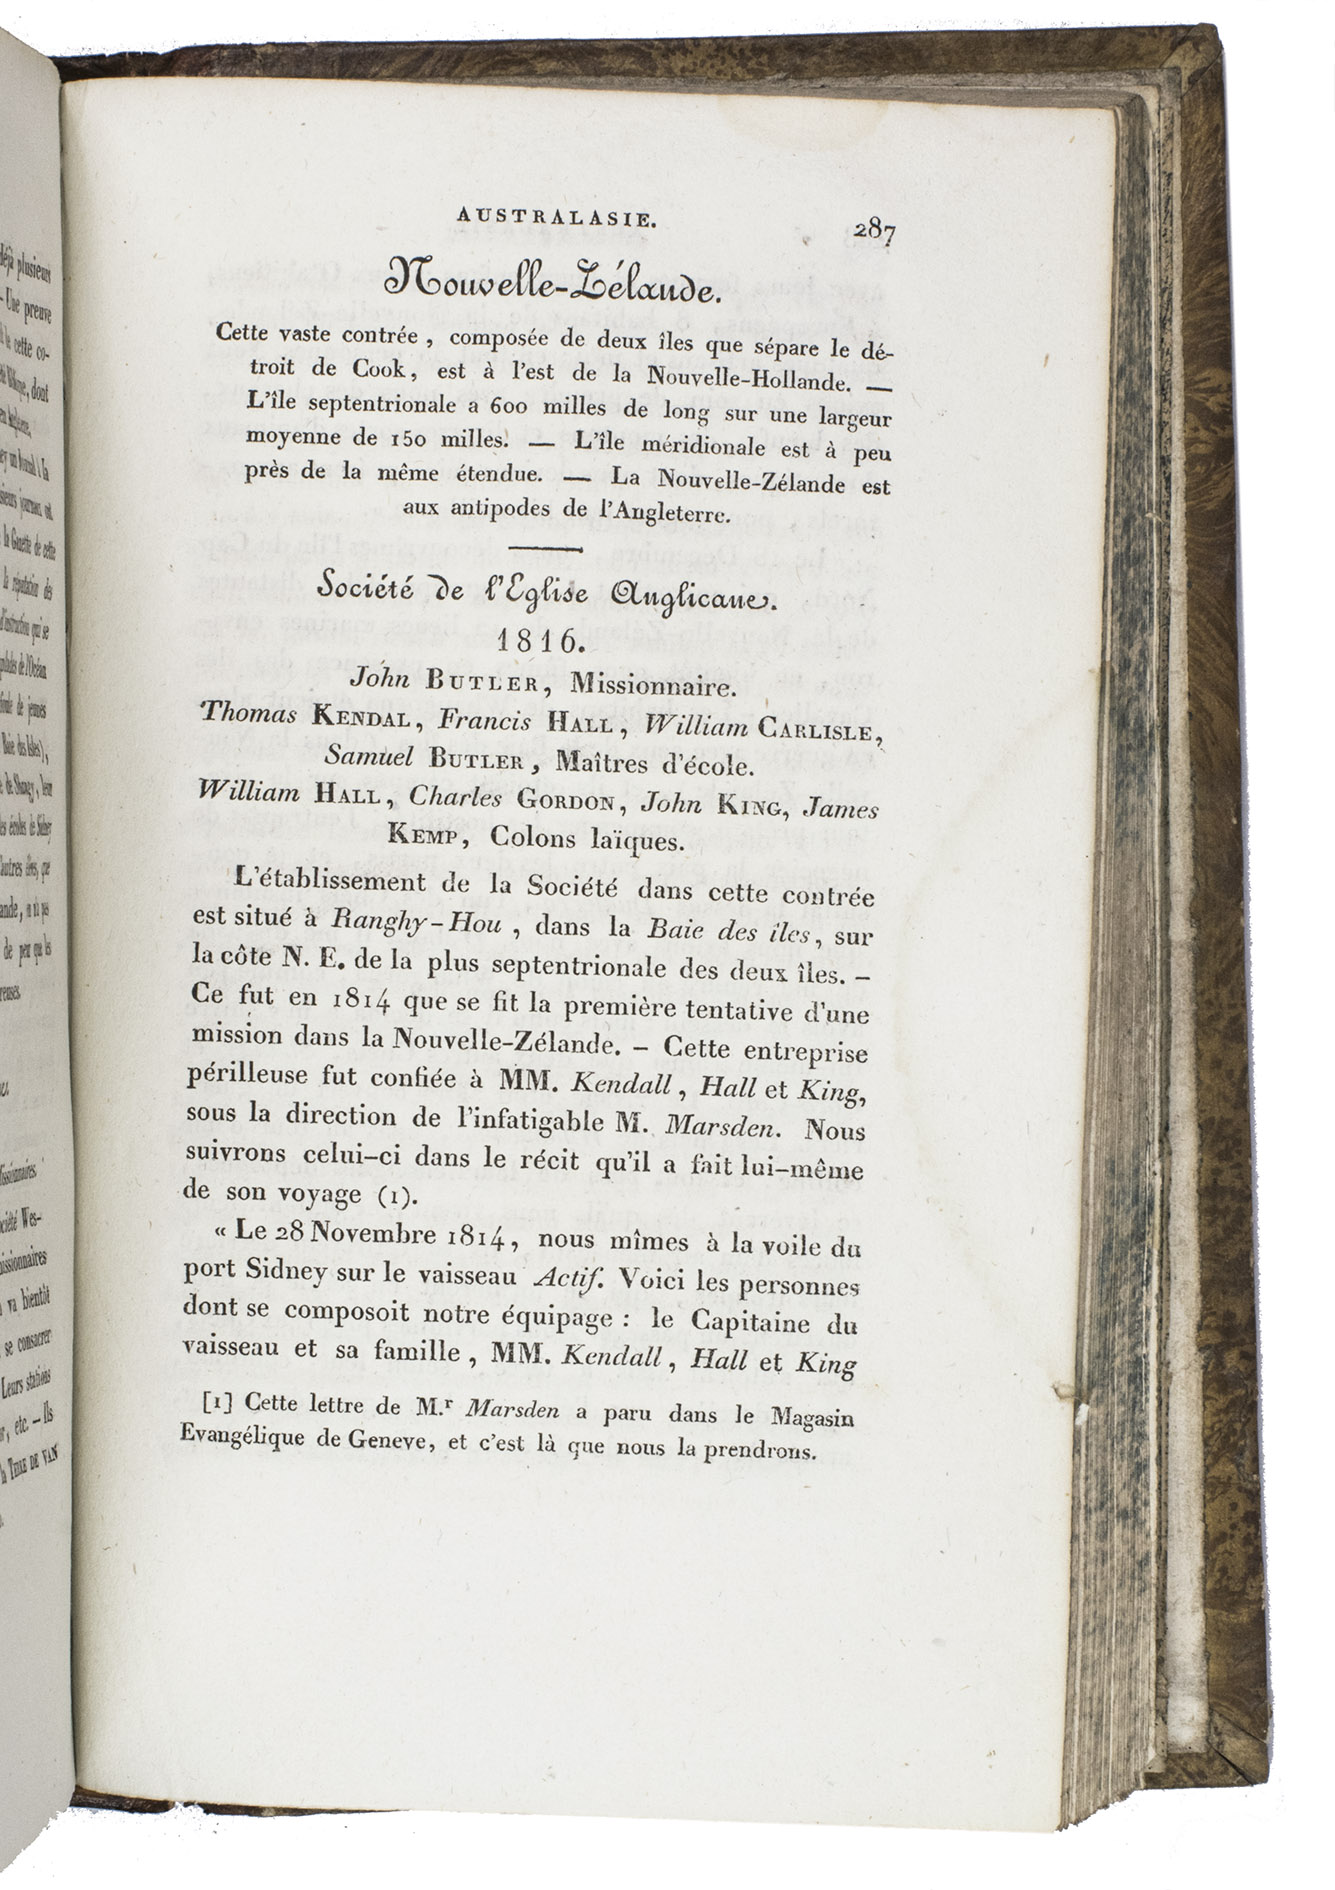 déjà plusieurs
- Une preuve
de cette co-
dont
en Angleterre.
la Gazette de cette
la réputation des
d'instruction qui se
de jeunes
Baie des Iles),
de Shungy, leur
les écoles de Sidney
d'autres îles, que
de peu que les
Missionnaires.
Société Wes-
missionnaires
va bientôt
se consacrer
Leurs stations
etc. — Ils
la TERRE DE VAN
AUSTRALASIE. 287
Nouvelle-Zélande.
Cette vaste contrée, composée de deux îles que sépare le dé-
troit de Cook, est à l'est de la Nouvelle-Hollande. —
L'île septentrionale a 600 milles de long sur une largeur
moyenne de 150 milles. — L'île méridionale est à peu
près de la même étendue. — La Nouvelle-Zélande est
aux antipodes de l'Angleterre.
Société de l'Eglise Anglicane.
1816.
John BUTLER, Missionnaire.
Thomas KENDAL, Francis HALL, William CARLISLE,
Samuel BUTLER, Maîtres d'école.
William HALL, Charles GORDON, John KING, James
KEMP, Colons laïques.
L'établissement de la Société dans cette contrée
est situé à Ranghy-Hou, dans la Baie des îles, sur
la côte N. E. de la plus septentrionale des deux îles. –
Ce fut en 1814 que se fit la première tentative d'une
mission dans la Nouvelle-Zélande. – Cette entreprise
périlleuse fut confiée à MM. Kendall, Hall et King,
sous la direction de l'infatigable M. Marsden. Nous
suivrons celui-ci dans le récit qu'il a fait lui-même
de son voyage (1).
« Le 28 Novembre 1814, nous mîmes à la voile du
port Sidney sur le vaisseau Actif. Voici les personnes
dont se composoit notre équipage : le Capitaine du
vaisseau et sa famille, MM. Kendall, Hall et King
[1] Cette lettre de M.r Marsden a paru dans le Magasin
Evangélique de Geneve, et c'est là que nous la prendrons.